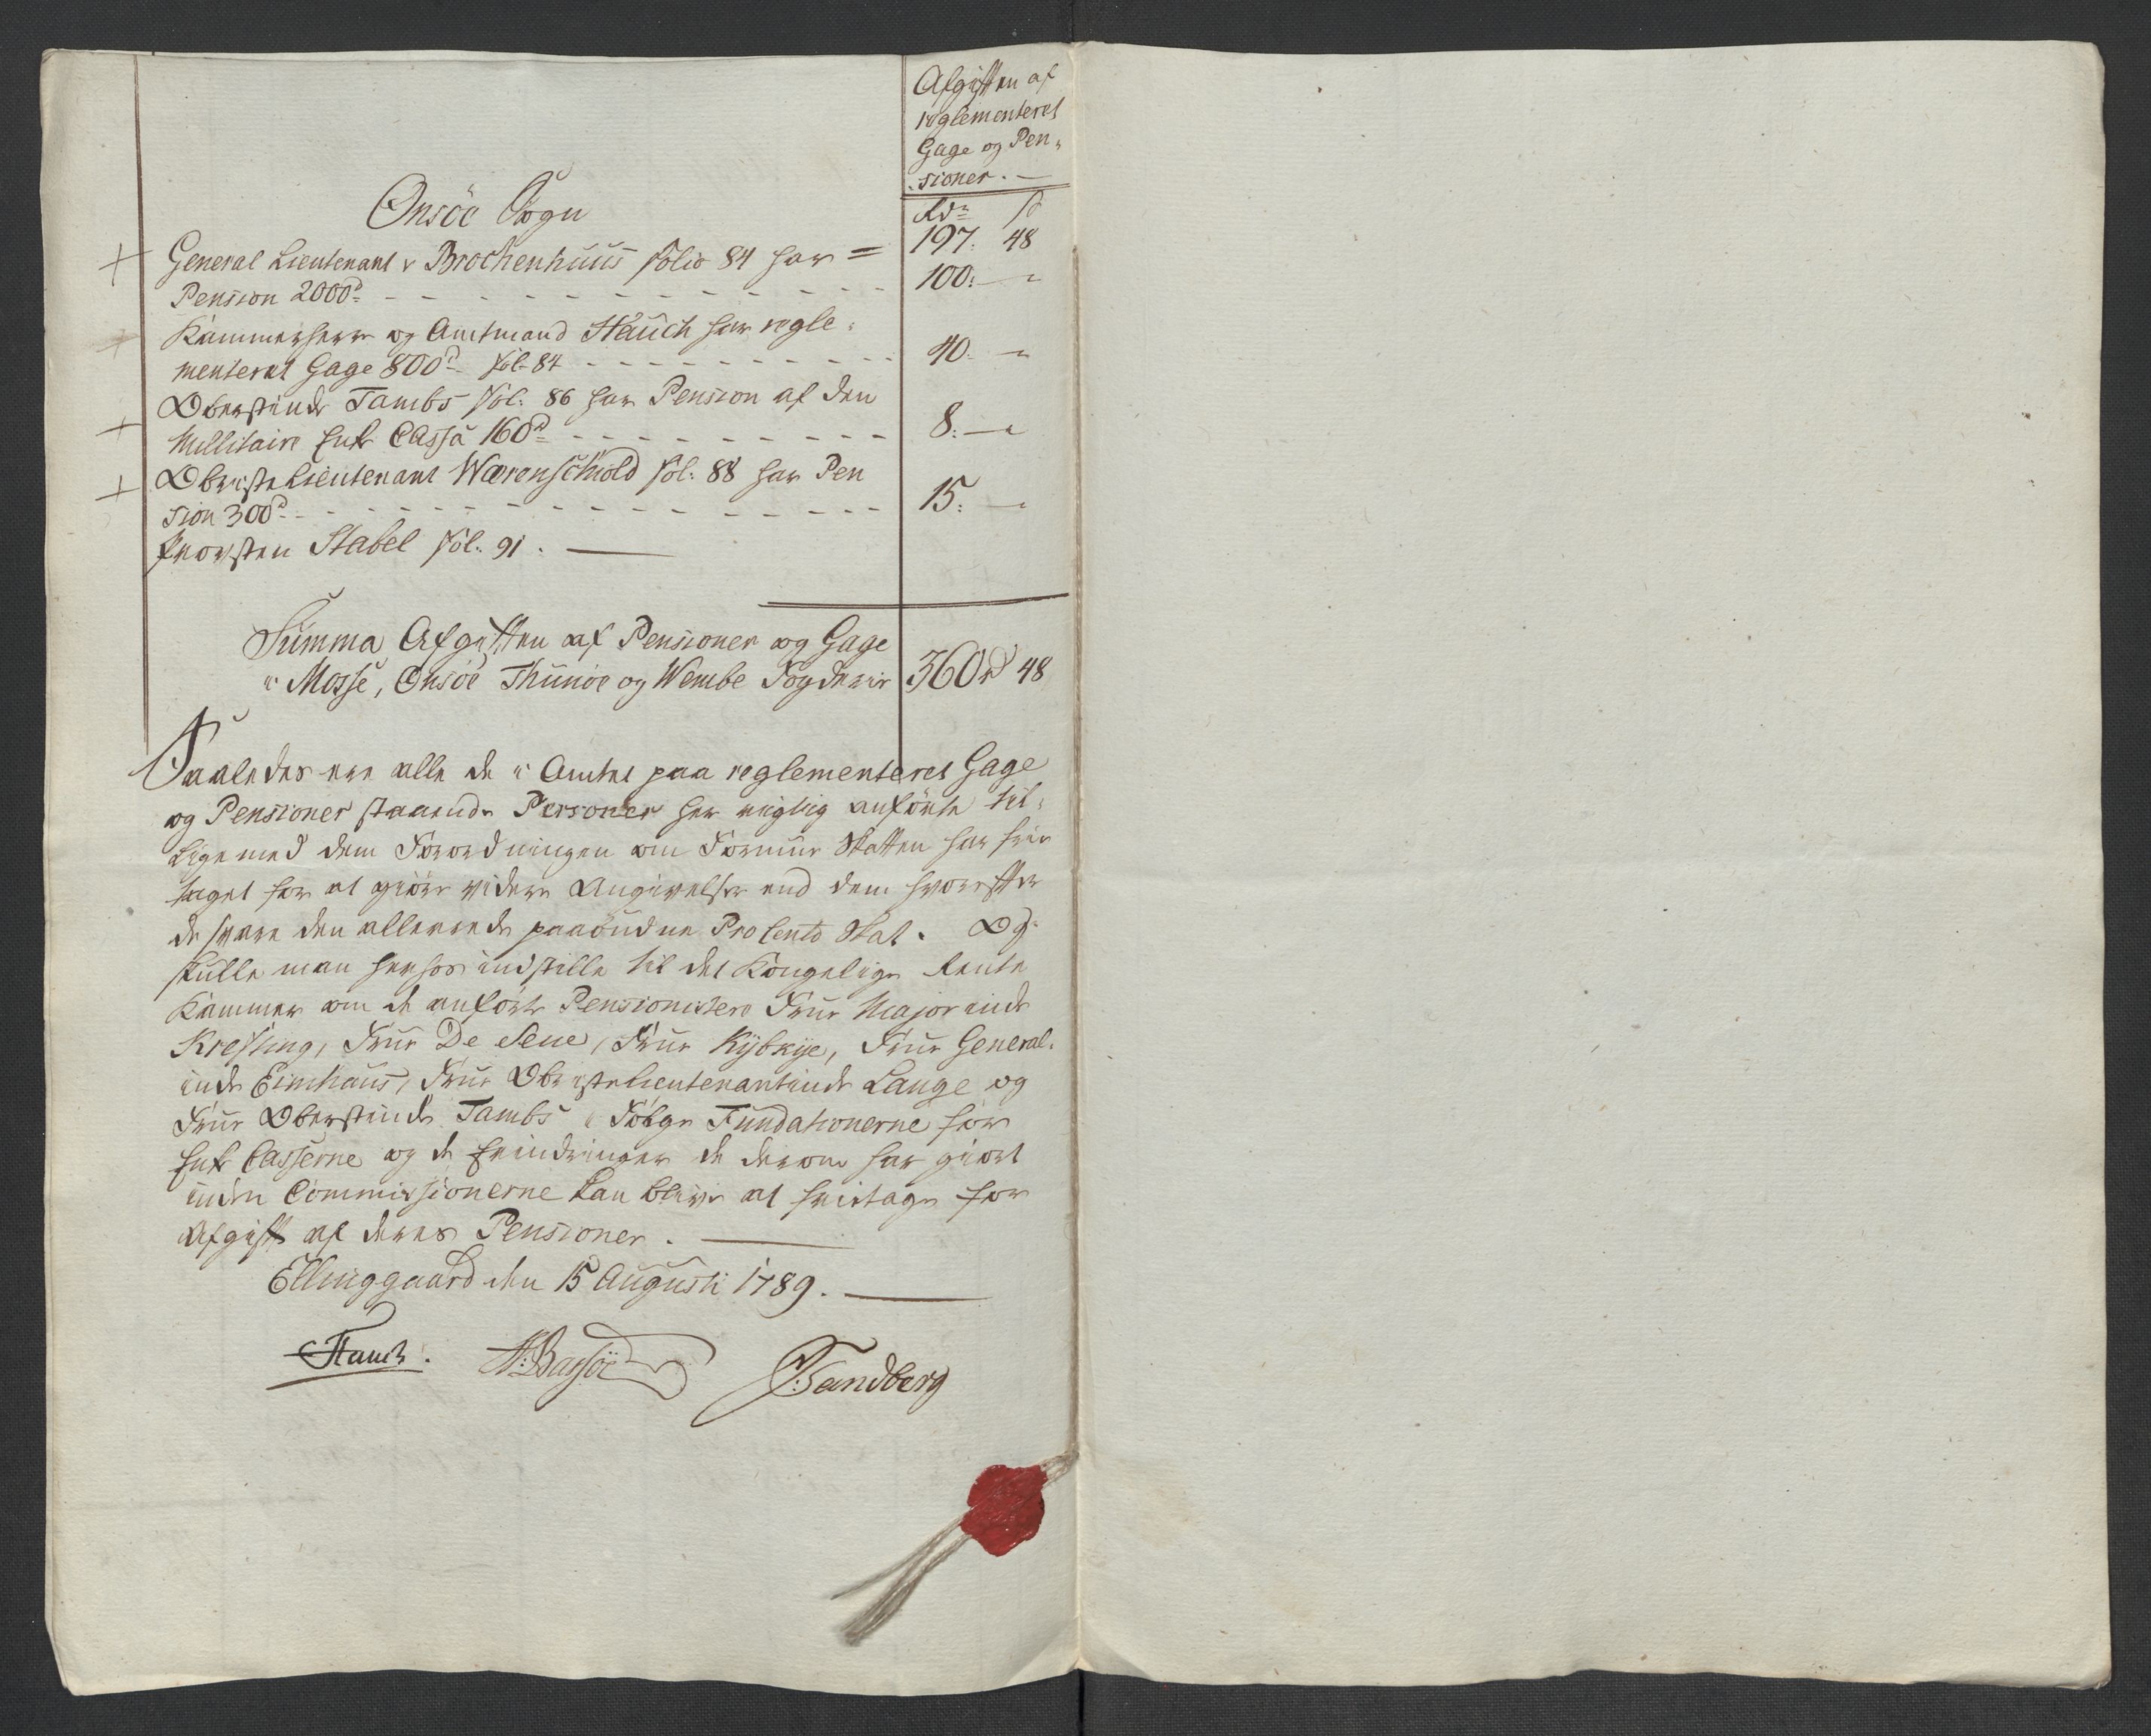 Afgiften af
reglementeret
Gage og Pen-
sioner. —
Rdr ß
197. 48
Onsöe Sogn
General Lieutenant v Brochenhuus Folio 84 har =
Pension 2000d - - - 100: —
Kammerherr og Amtmand Hauch har regle-
menteret Gage 800d Fol: 84 - - - 40. —
Oberstinde Tambs Fol: 86 har Pension af den
Millitaire Enke Cassa 160d - - - 8: —
Obriste Lieutenant Wærenschiold Fol: 88 har Pen
sion 300d - - - 15: —
Provsten Stabel Fol: 91. —
Summa Afgiften af Pensioner og Gage
i Mosse, Onsöe Thunöe og Wembe Fogderie 360rd 48
Saaledes ere alle de i Amtet paa reglementeret Gage
og Pensioner staaende Personer her rigtig anförte til-
lige med dem Forordningen om Formue Skatten har frie
taget for at giöre videre Angivelse end dem hvorefter
de svare den allereede paabudne Procento Skat. Og
skulle man herhos indstille til det Kongelige Rente
Kammer om de anförte Pensionister Frue Majorinde
Kresting, Frue De Seue, Frue Kybkye, Frue General-
inde Eimhaus, Frue Obriste Lieutenantinde Lange og
Frue Oberstinde Tambs i Fölge Fundationerne for
Enke Casserne og de Erindringer de derom har giort
inden Commissionerne kan blive at frietage for
Afgift af deres Pensioner. —
Ellinggaard den 15 Augusti 1789. —
Hauch. Sandberg